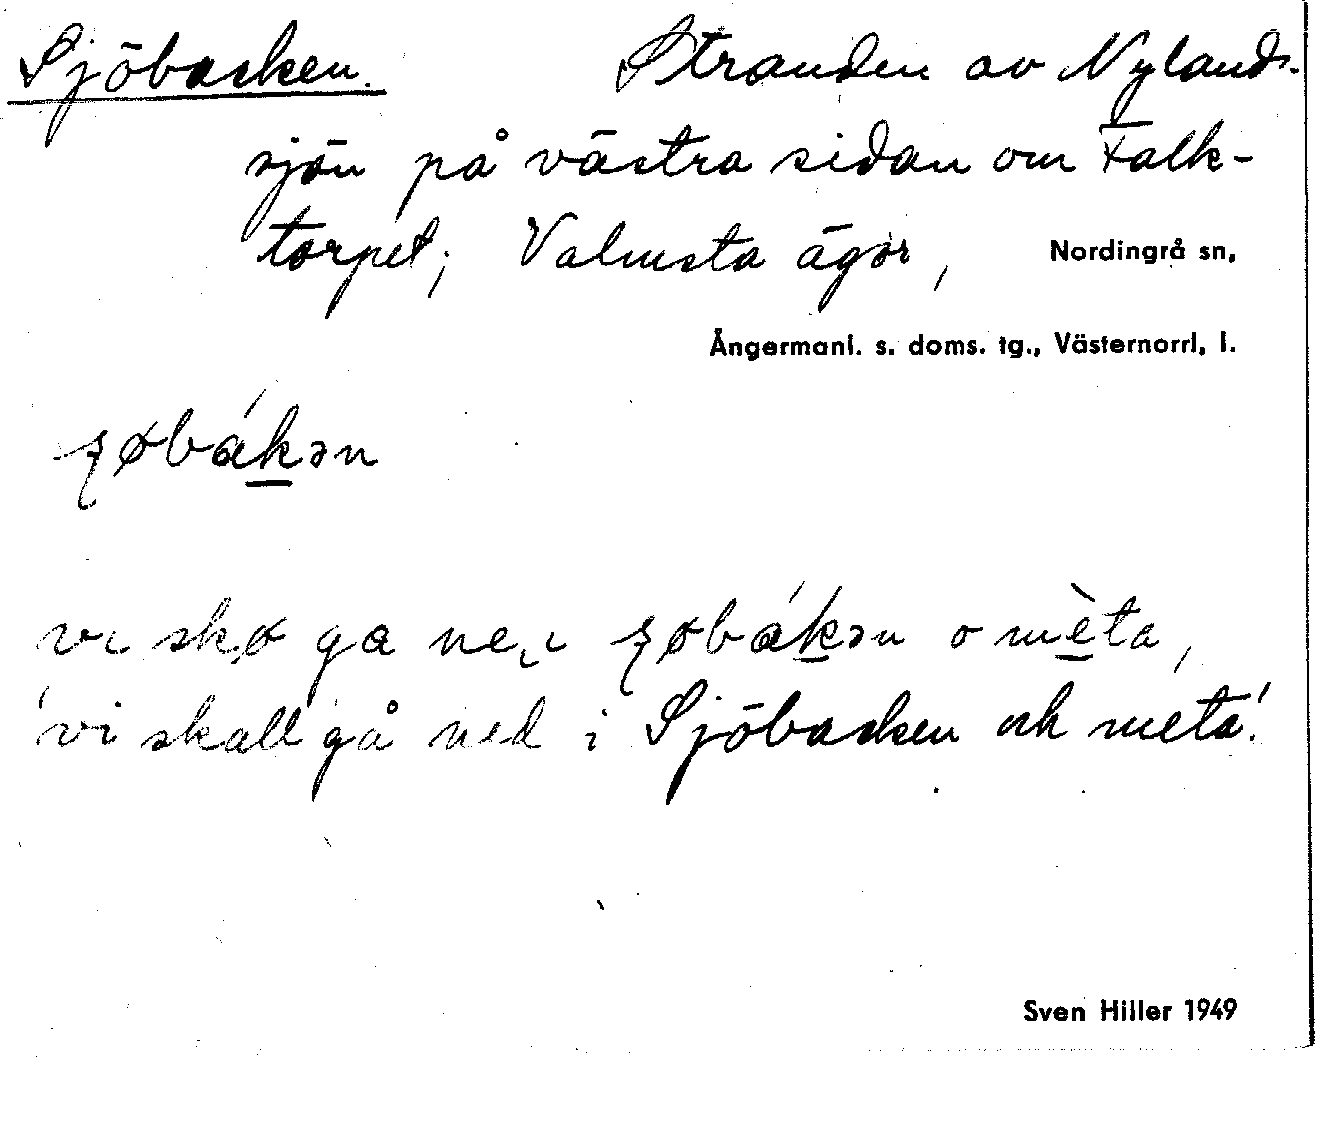 Sjöbacken. Stranden av Nylands-
sjön på västra sidan om Falk-
torpet; Valmsta ägor, Nordingrå sn,
Ångermanl. s. doms. tg., Västernorrl. l.
ʂøbákən
vi skø ga ne i ʂøbákən o mèta,
'vi skall gå ned i Sjöbacken och meta'.
Sven Hiller 1949